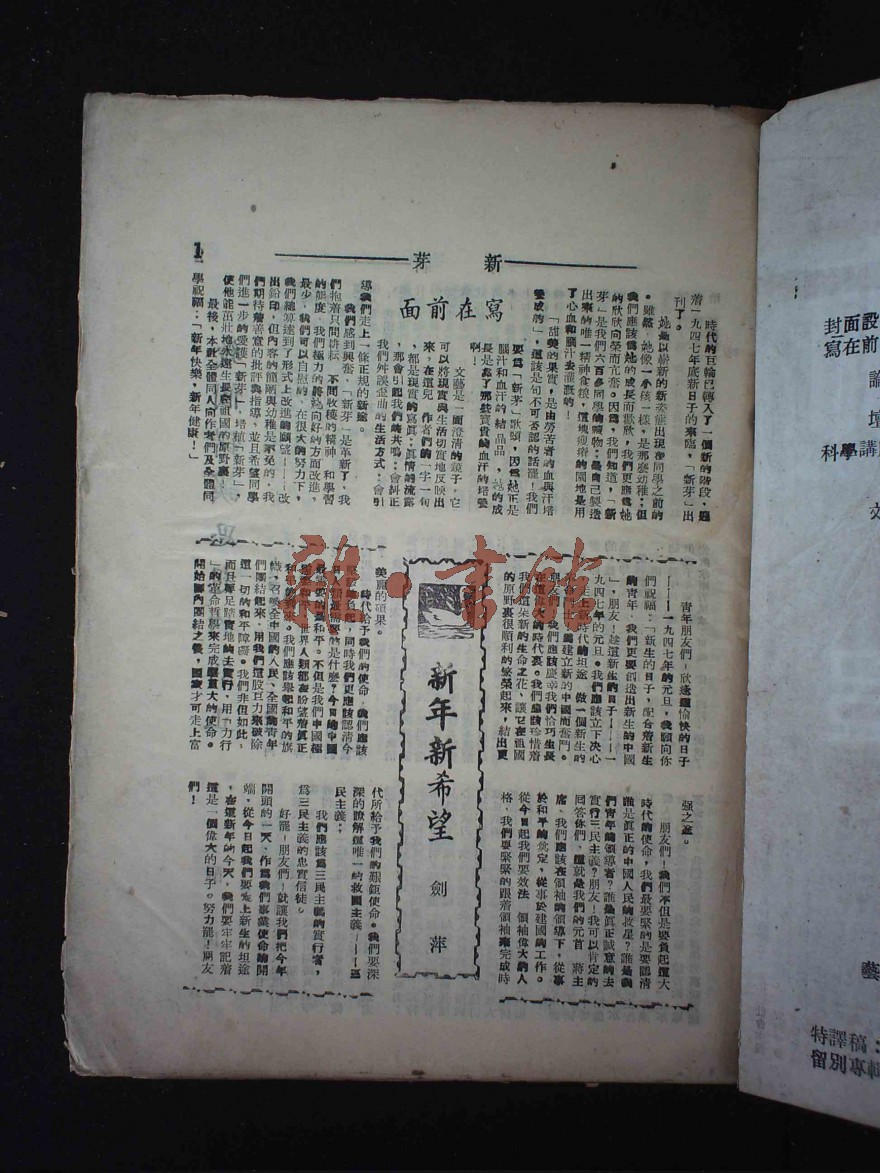 新芽
1
寫在前面
時代的巨輪已轉入了一個新的階段，隨
着一九四七年底新日子的來臨，「新芽」出
刊了。
她是以嶄新的新姿態出現在同學之前的
。雖然，她像一個小孩一樣，是那麼幼稚；但
我們應該為她的成長而歡欣，我們更應為她
的欣欣向榮而亢奮。因為，我們知道，「新
芽」是我們六百多同學的喉物；是自己製造
出來的唯一精神食糧，這塊瘠瘦的園地是用
了心血和腦汁去灌溉的！
「甜美的果實，是由勞苦者的血與汗培
養成的」，這該是句不可否認的話罷！我們
要為「新芽」歌頌，因為她正是
腦汁和血汗的結晶品，她的成
長是靠了那些寶貴的血汗的培養
啊！
文藝是一面澄清的鏡子，它
可以將現實與生活切實地反映出
來，在這兒，作者們的一字一句
，都是現實的寫真；真情的流露
，那會引起我們的共鳴；會糾正
我們舛誤歪曲的生活方式；會引
導我們走上一條正規的新途。
我們感到興奮，「新芽」是革新了，我
們抱着只問耕耘，不問收穫的精神，和學習
的態度，我們極力的將她向好的方面改進，
最少，我們可以自慰的，在很大的努力下，
我們總算達到了形式上改進的願望——改
出鉛印，但內容的簡陋與幼稚是不免的，我
們期待着善意的批評與指導，並且希望同學
們進一步的愛護「新芽」，培植「新芽」，
使他能茁壯地永遠生長在祖國的原野裏！
最後，本社全體同人向作者們及全體同
學祝福：「新年快樂，新年健康！」
新年新希望
劍萍
青年朋友們！欣逢這愉快的日子
——一九四七年的元旦，我願向你
們祝福：「新生的日子，配合着新生
的青年，我們更要創造出新生的中國
」，朋友！趁這新生的日子——一
九四七年的元旦。我們應該立下决心
，走上新時代的坦途，做一個新生的
建立新的中國而奮鬥。
我們應該慶幸我們恰巧生長
在這偉大的時代裏。我們應該珍惜着
我們這朵新的生命之花，讓它在祖國
的原野裏很順利的繁榮起來，結出更
美麗的碩果。
時代給予我們的使命，我們應該
同時我們更應該認清今
是什麼？今日的中國
和平。不但是我們中國極
世界人類都在盼望着真正
我們應該舉起和平的旗
幟，召喚全中國的人民、全國的青年
們團結起來，用我們這股巨力來破除
這一切的和平障礙。我們非但如此；
而且要足踏實地的去實行，用「力行
」的革命哲學來完成艱重大的使命。
開始國內團結之後，國家才可走上富
强之途。
朋友們！我們不但是要負起這大
時代的使命，我們最要緊的是要認清
誰是真正的中國人民的救星？誰是我
們青年的領導者？誰是真正誠意的去
實行三民主義？朋友！我可以肯定的
回答你們，這就是我們的元首　蔣主
席，我們應該在領袖的領導下，從事
於和平的奠定，從事於建國的工作。
從今日起我們要效法　領袖偉大的人
格，我們要緊緊的跟着領袖來完成時
代所給予我們的艱鉅使命。我們要深
深的瞭解這唯一的救國主義——三
民主義；
我們應該為三民主義的實行者，
為三民主義的忠實信徒。
好罷！朋友們！就讓我們把今年
開頭的一天，作為我們事業使命的開
端，從今日起我們要走上新生的坦途
，在這新年的今天，我們要牢牢記着
這是一個偉大的日子。努力罷！朋友
們！
雜·書館
封面設
寫在前
論
壇
科學講
藝
特譯稿：
留別專輯